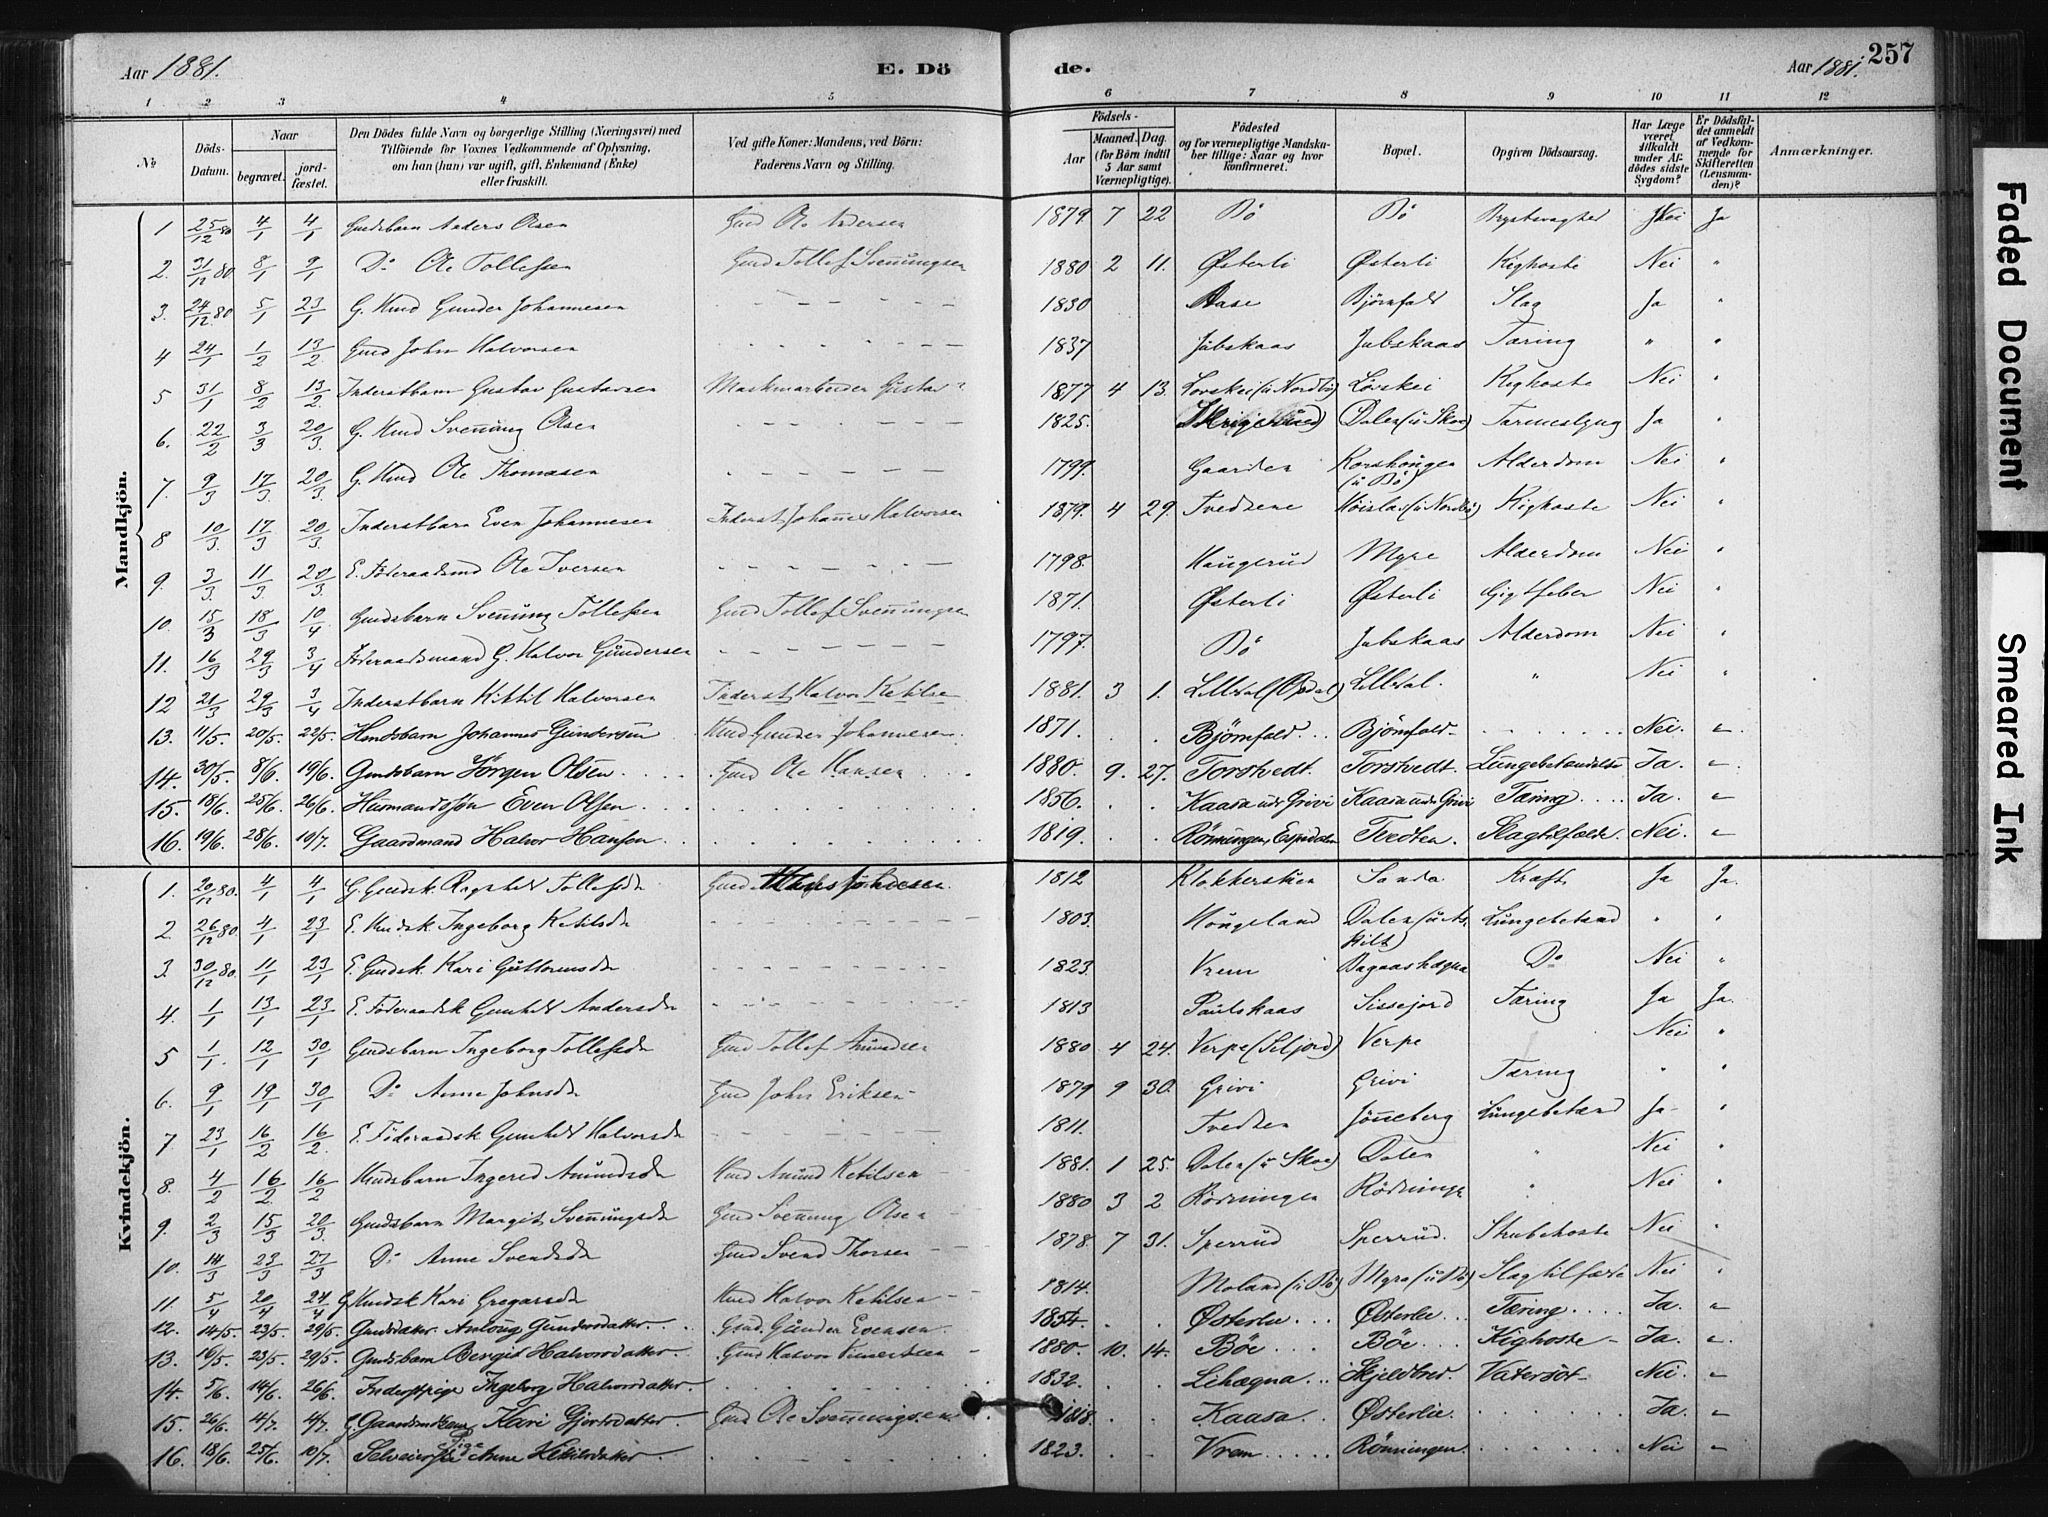 Aar 1881. E. Dö
de. Aar 1881. 257
1 2 3 4 5
6 7 8 9 10 11 12
No
Döds-
Datum.
Naar
begravet. jord-
fæstet.
Den Dödes fulde Navn og borgerlige Stilling (Næringsvei) med
Tilföiende for Voxnes Vedkommende af Oplysning,
om han (hun) var ugift, gift, Enkemand (Enke)
eller fraskilt.
Ved gifte Koner: Mandens, ved Börn:
Faderens Navn og Stilling.
Födsels-
Aar Maaned. Dag.
(for Börn indtil
5 Aar samt
Værnepligtige).
Födested
og for værnepligtige Mandska-
ber tillige: Naar og hvor
konfirmeret.
Bopæl.
Opgiven Dödsaarsag.
Har Læge
været
tilkaldt
under Af-
dödes sidste
Sygdom?
Er Dödsfal-
det anmeldt
af Vedkom-
mende for
Skifteretten
(Lensman-
den)?
Anmærkninger.
Mandkjön.
1 25/12 80 4/1 4/1 Gmdsbarn Anders Olsen Gmd Ole Andersen 1879 7 22 Bö Bö Nei Ja
2. 31/12 80 8/1 9/1 Do Ole Tollefsen Gmd Tollef Svenningsen 1880 2 11. Østerli Østerli Kighoste Nei "
3. 24/12 80 5/1 23/1 G. Hmd Gunder Johannesen 1830 Aase Bjørnfald Slag Ja "
4 24/1 1/2 13/2 Gmd John Halvorsen 1837 Jubskaas Jubskaas Tæring " "
5 31/1 8/2 13/2 Inderstbarn Gustav Gustavsen Gustav " 1877 4 13. (u Nordbö) Kighoste Nei "
6. 22/2 3/3 20/3 G. Hmd Svenning Olsen 1825. Dalen (u Skoe) Tarmeslyng Ja "
7. 9/3 17/3 20/3 G. Hmd Ole Thomasen 1799. Gaarden Korshougen (u Bö) Alderdom Nei "
8 10/3 17/3 20/3 Inderstbarn Even Johannesen Inderst Johannes Halvorsen 1879. 4 29. Tvedtene (u Nordbö) Kighoste Nei "
9. 3/3 11/3 20/3 E. Föderaadsmd Ole Iversen 1798. Haugerud Myre Alderdom Nei "
10. 15/3 18/3 10/4 Gmdsbarn Svenning Tollefsen Gmd Tollef Svenningsen 1871. Østerli Østerli Gigtfeber Nei "
11. 16/3 29/3 3/4 Föderaadsmand G. Halvor Gundersen 1797. Bö Jubskaas Alderdom Nei "
12 21/3 29/3 3/4 Inderstbarn Kittil Halvorsen Inderst Halvor Ketilse 1881. 3 1. Lilledal (Opdal) Lilledal. " Nei "
13. 11/5. 20/5. 22/5. Hmdsbarn Johannes Gundersen Hmd Gunder Johannesen. 1871. Bjömfald Bjömfald Nei. "
14. 30/5. 8/6. 19/6. Gmdsbarn Jörgen Olsen Gmd Ole Hansen 1880. 9. 27. Torstvedt. Torstvedt. Lungebetændelse Ja. "
15. 18/6. 25/6. 26/6. Husmandssön Even Olsen 1856. Kaasa und. Grivi Kaasa und. Grivi Tæring Ja. "
16. 19/6. 28/6. 10/7. Gaardmand Halvor Hansen 1819. Rönningen, Espedalen Tvedten Slagtilfælde. Nei. "
Kvindekjön.
1. 20/12 80. 4/1 4/1 G. Gmdsk. Ragnhild Tollefsd Gmd 1812 Klokkerstuen Sanda Kræft Ja Ja.
2 26/12 80. 4/1 23/1 E. Hmdsk Ingeborg Ketilsd 1803. Hougeland Dalen Lungebetænd " "
3. 30/12 80. 11/1 23/1 E. Gmdsk. Kari Guttormsd 1823. Vrem Do Nei "
4. 1/1 13/1 23/1 E. Föderaadsk Gunhild Andersd 1813 Paulskaas Sissejord Tæring Ja Ja.
5 1/1. 12/1 30/1 Gmdsbarn Ingeborg Tollefsd Gmd Tollef Amundsen 1880 4 24. Verpe (Siljord) Verpe Nei "
6. 9/1 19/1 30/1 Do Anne Johnsd Gmd John Eriksen 1879 9 30. Grivi Grivi Tæring " "
7. 23/1 16/2 16/2. E. Föderaadsk Gunhild Halvorsd 1811. Tvedten Jönneberg Lungebetænd Ja "
8. 4/2 16/2. 16/2 Hmdsbarn Ingered Amundsd Hmd Amund Ketilsen 1881. 1 25. Dalen (u Skoe) Dalen " Nei "
9. 2/3 15/3 20/3 Gmdsbarn Margit Svenningsd Gmd Svenning Olsen 1880 3 2 Rödningen Rödninge " Nei "
10. 14/3 23/3 27/3 Do Anne Svendsd Gmd Svend Thorsen 1878. 7 31. Sperrud Sperrud. Strubehoste Nei "
11. 5/4 20/4 24/4 G Hmdsk Kari Gregarsd Hmd Halvor Ketilsen 1814. Moland (u Bö) Myra (u Bö) Slagtilfælde Nei "
12. 14/5. 23/5. 29/5. Gmdsdatter Anlaug Gundersdatter. Gmd. Gunder Evensen. 1854. Østerlie Østerlie Tæring Ja. "
13. 16/5. 23/5. 29/5. Gmdsbarn Bergit Halvorsdatter Gmd Halvor 1880. 10. 14. Böe Böe Kighoste Ja. "
14. 5/6. 14/6. 26/6. Inderstpige Ingeborg Halvorsdatter. 1832. Lihægna Skjeldbred Vatersot Nei. "
15. 26/6. 4/7. 4/7. G. Gaardmandskone Kari Gjertsdatter. Gmd Ole Svenningsen 1818. Kaasa. Østerlie. Ja. "
16. 18/6. 25/6. 10/7. Selveierpige Anne Kittilsdatter 1823. Vrem Rönningen. Nei "
Faded Document
Smeared Ink